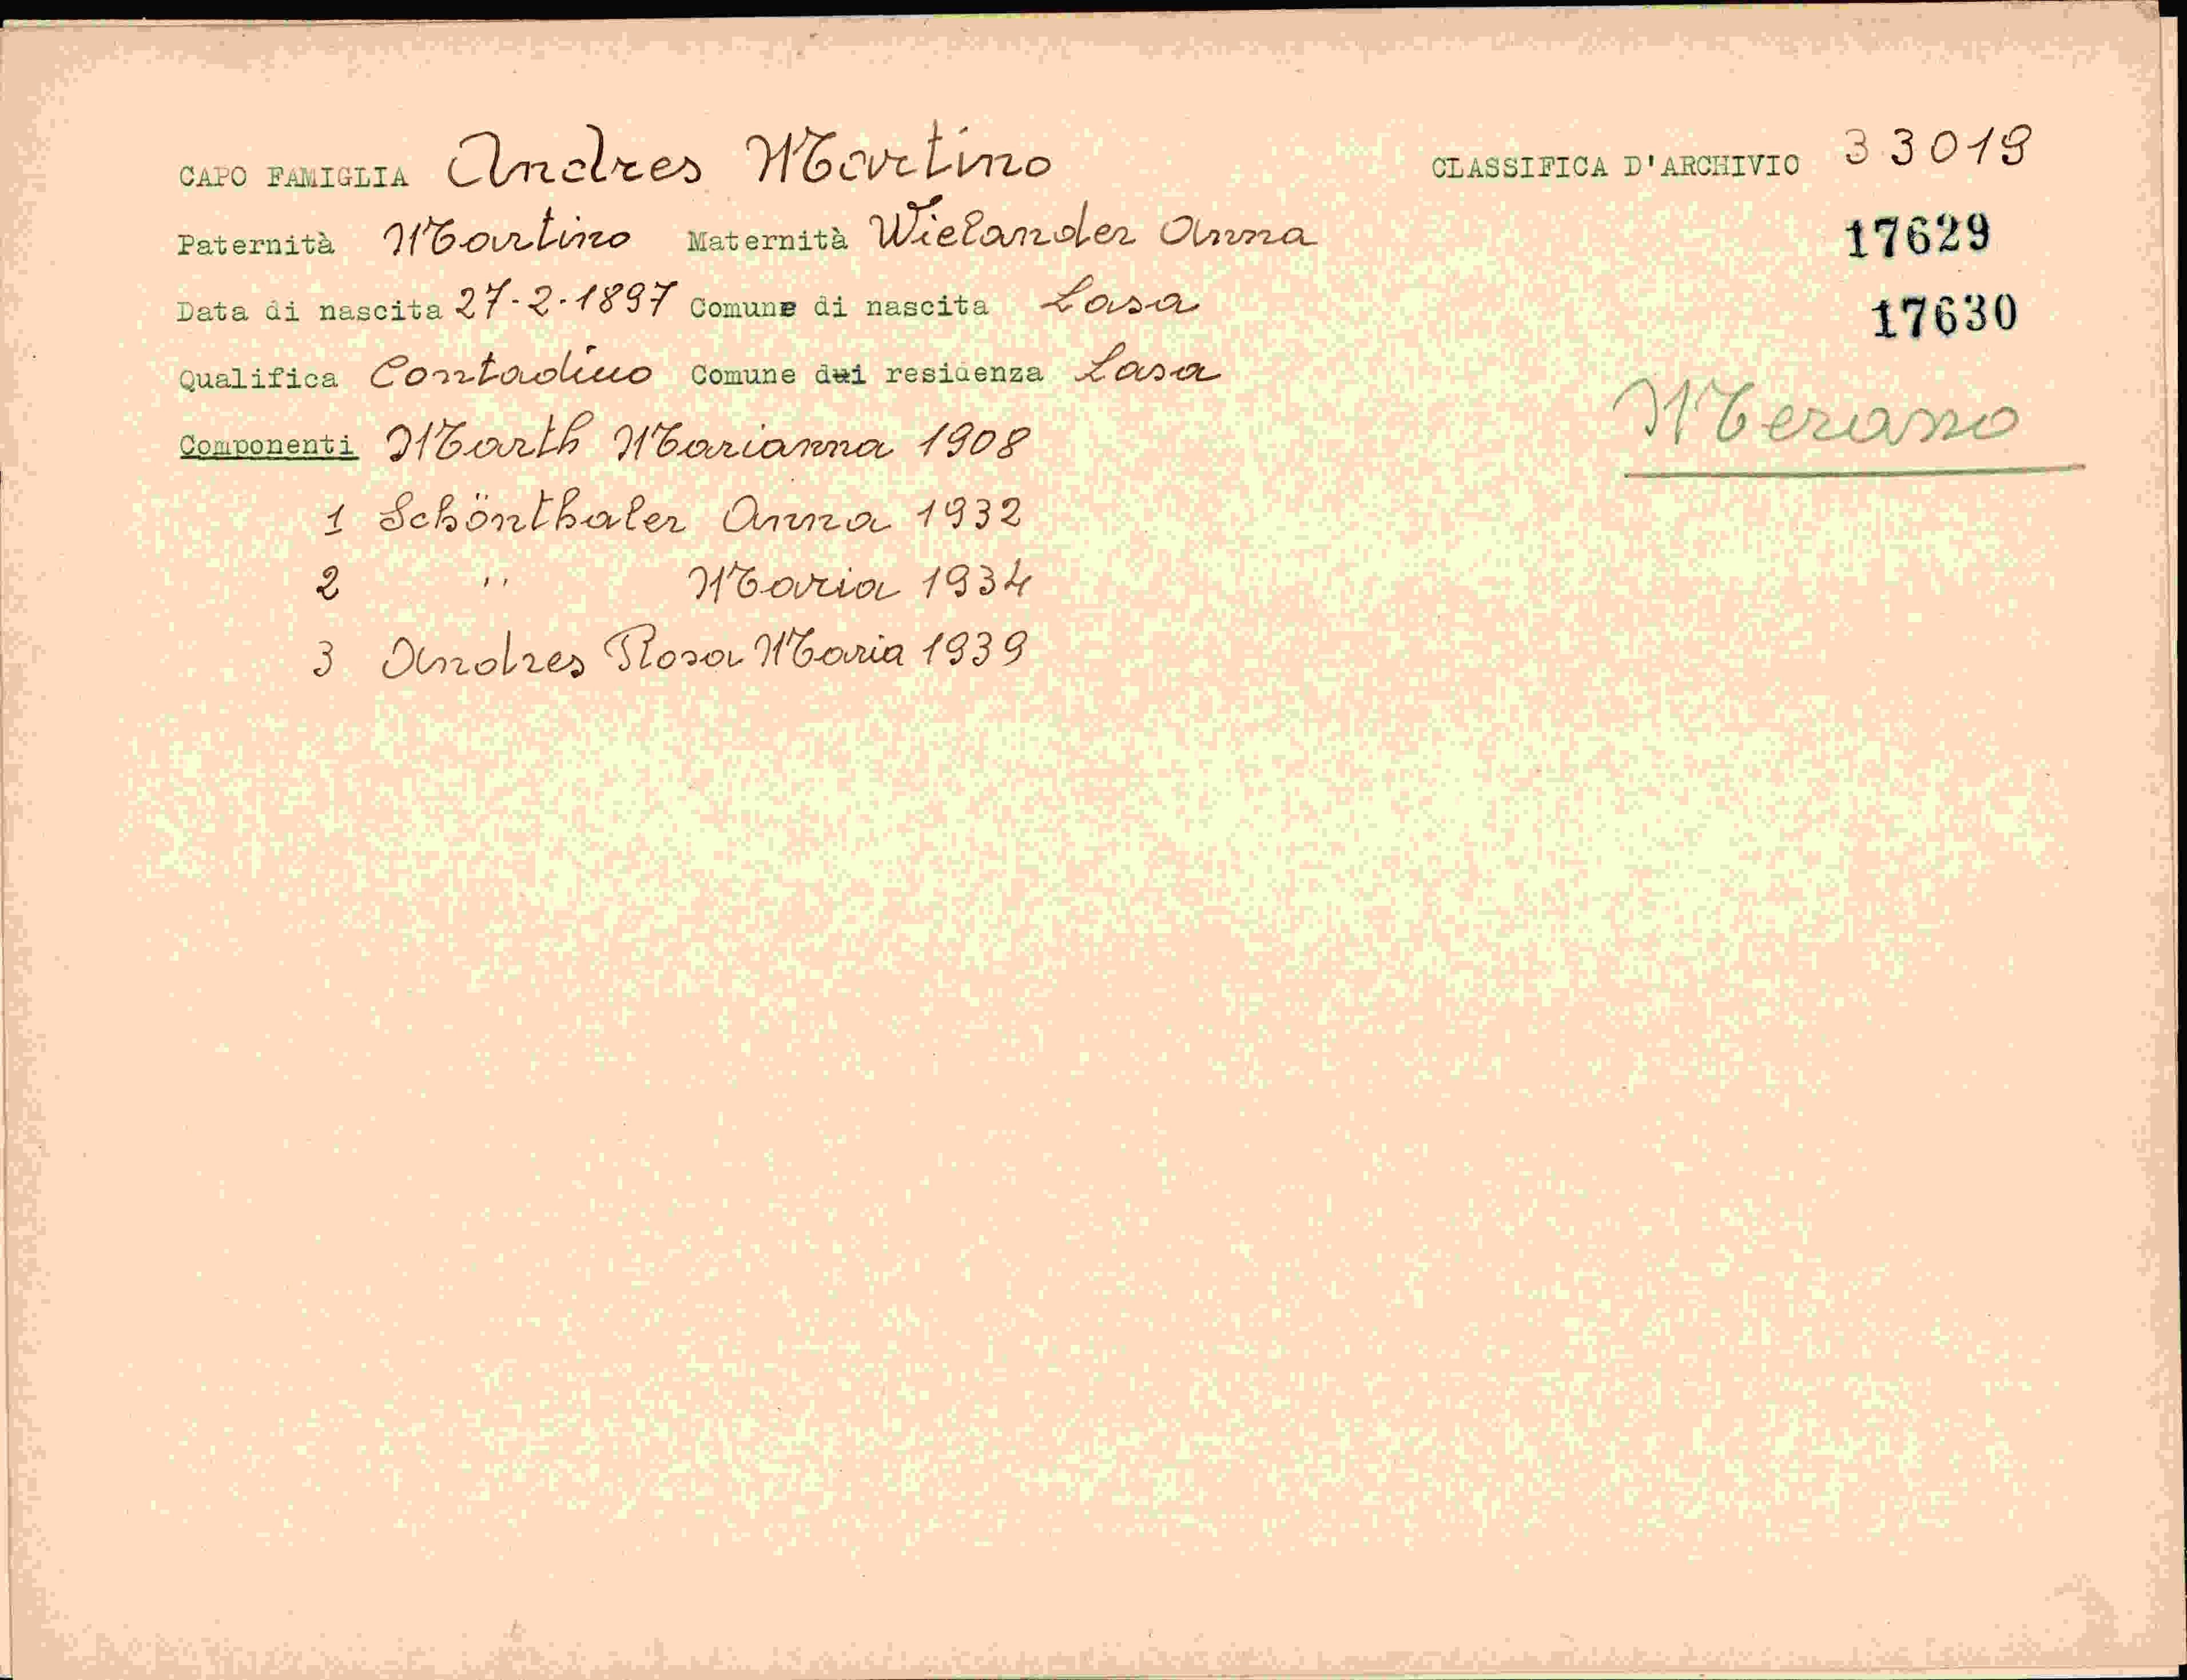 CAPO FAMIGLIA Andres Martino CLASSIFICA D'ARCHIVIO 33019
Paternità Martino Maternità Wielander Anna 17629
Data di nascita 27-2-1897 Comune di nascita Lasa 17630
Qualifica Contadino Comune dui residenza Lasa
Merano
Componenti Marth Marianna 1908
1 Schönthaler Anna 1932
2 " Maria 1934
3 Andres Rosa Maria 1939